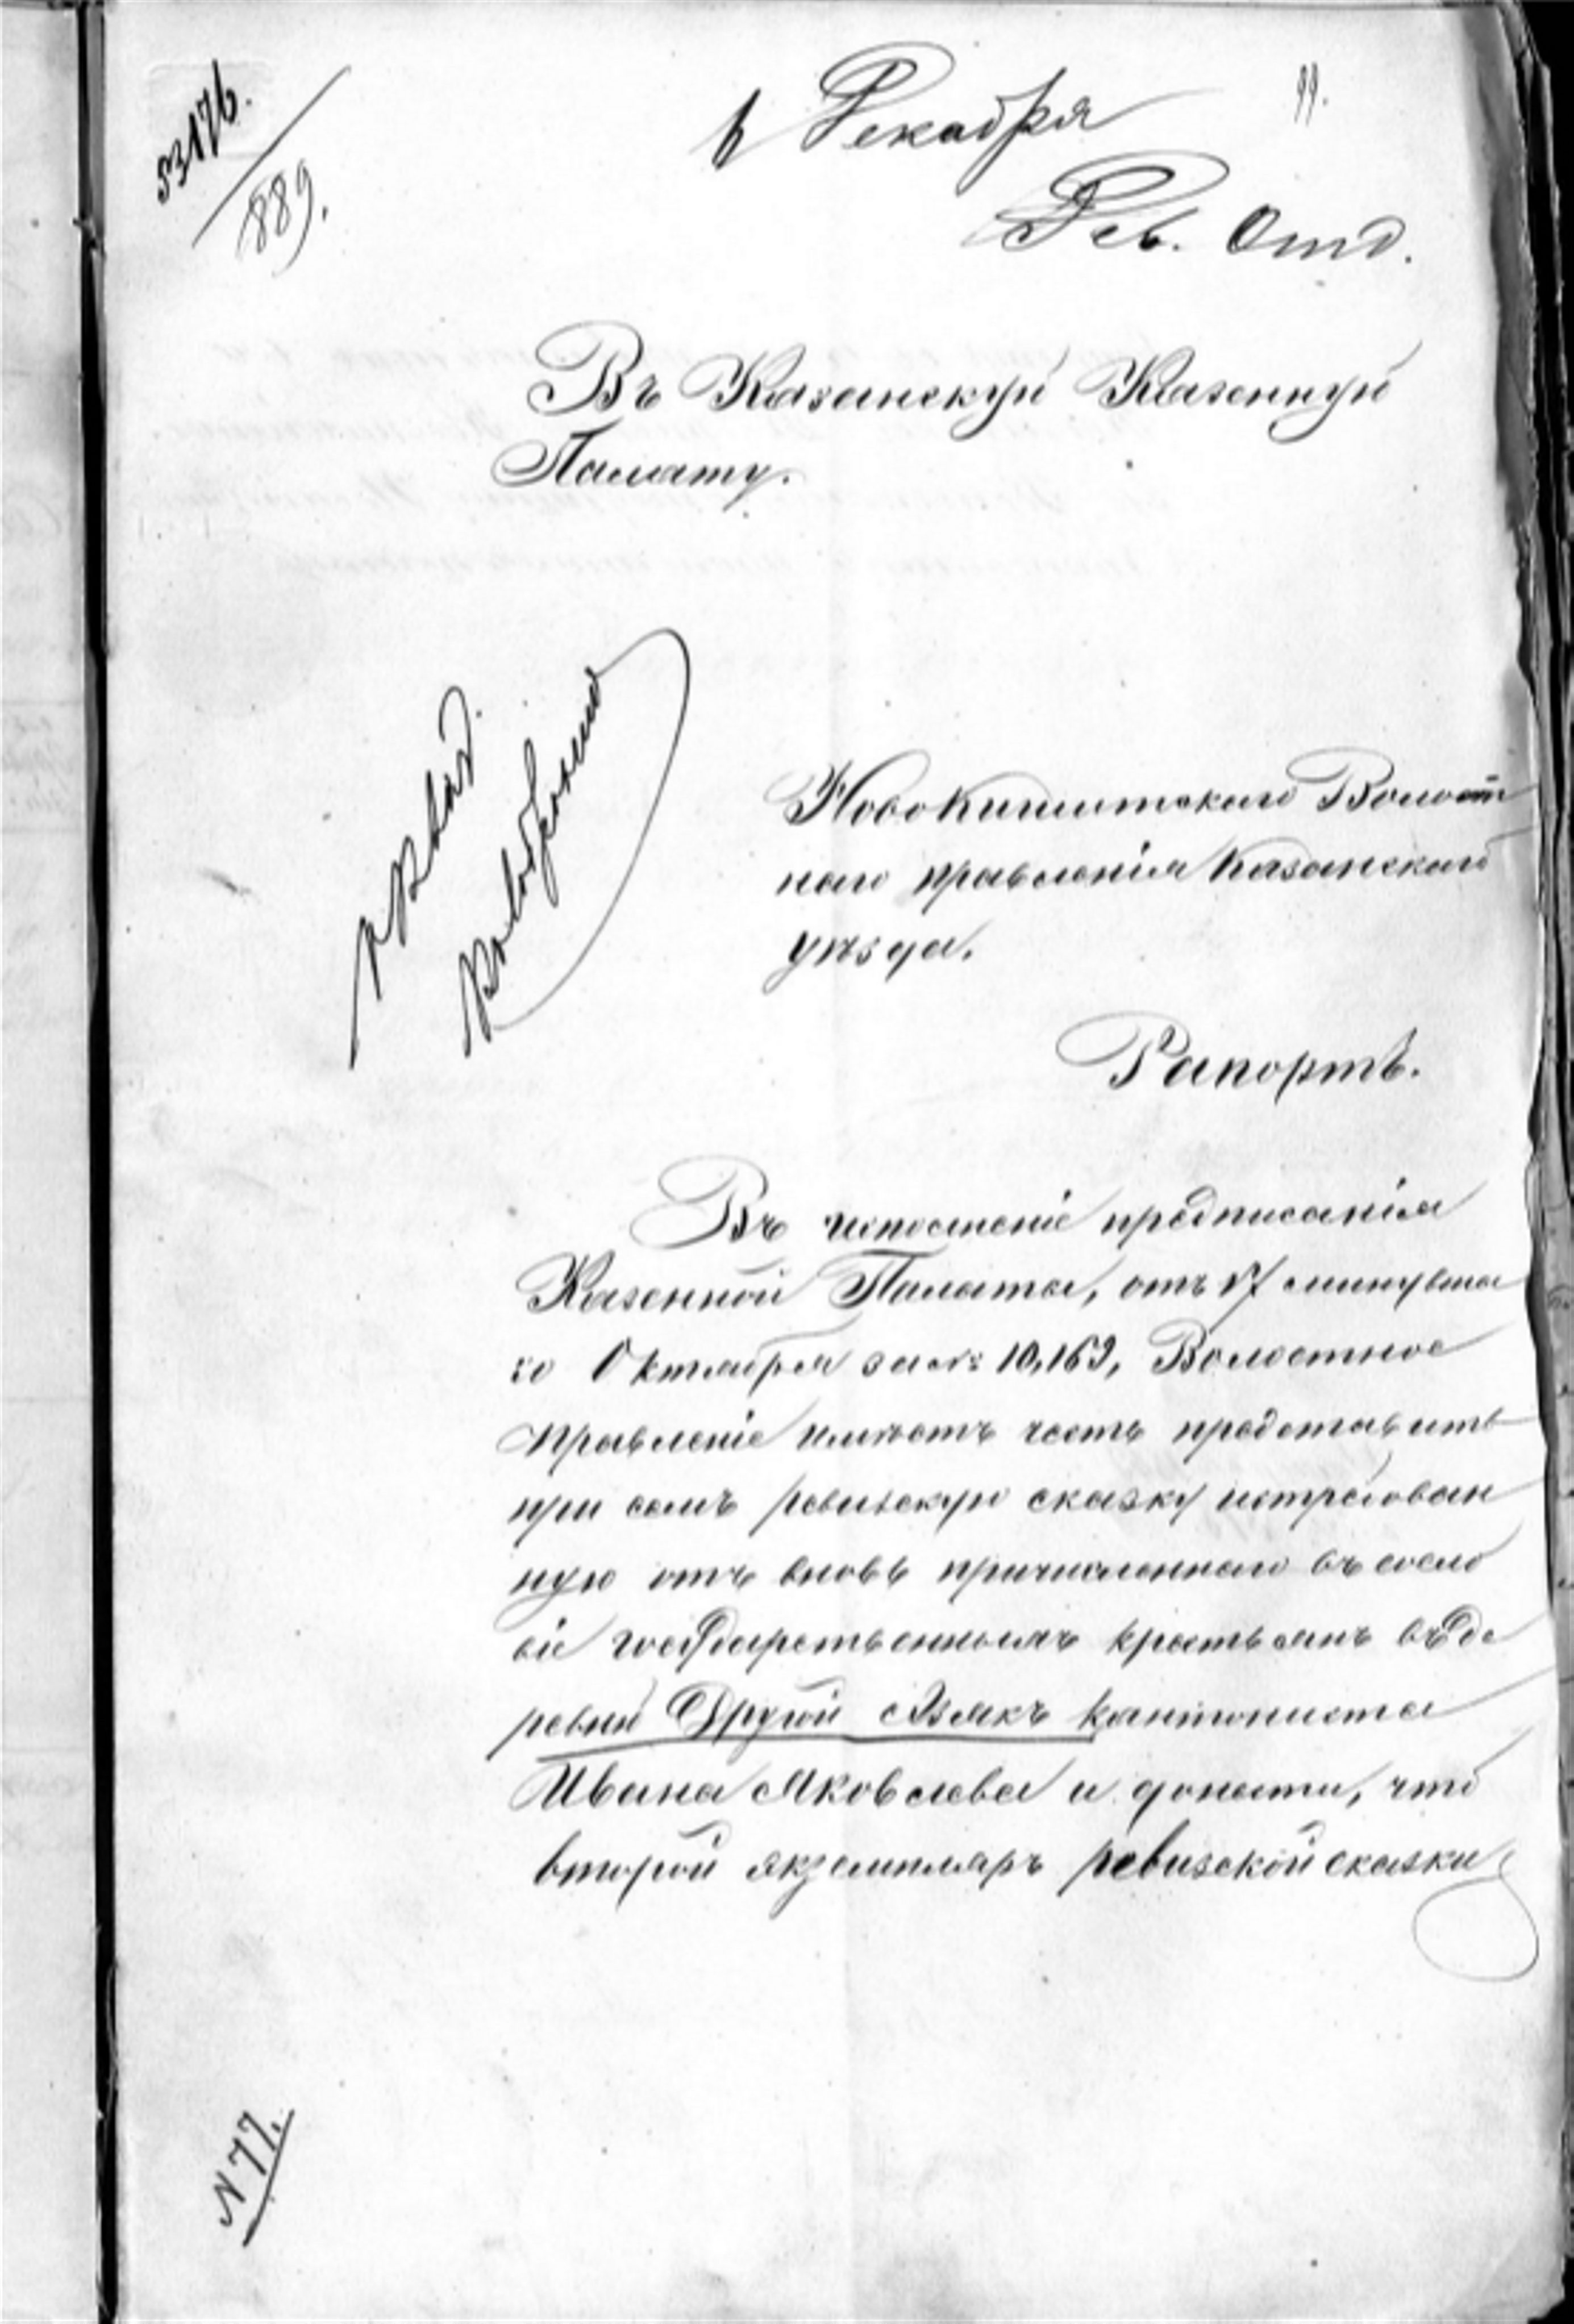 53176.
889.
6 Декабря
99.
Рев. Отд.
Въ Казанскую Казенную
Палату.
Новокишитскаго Волост
наго правленія Казанскаго
уѣзда.
Рапортъ.
Въ исполненіе предписанія
Казенной Палаты, отъ 17 минувша
го Октября за № 10,169, Волостное
Правленіе имѣетъ честь представить
при семъ ревизскую сказку истребован
ную отъ вновь причисленнаго въ сосло
віе государственныхъ крестьянъ въ де
ревни Другой Азякъ кантониста
Ивана Яковлева и донести, что
второй экземпляръ ревизской сказки
N 77.